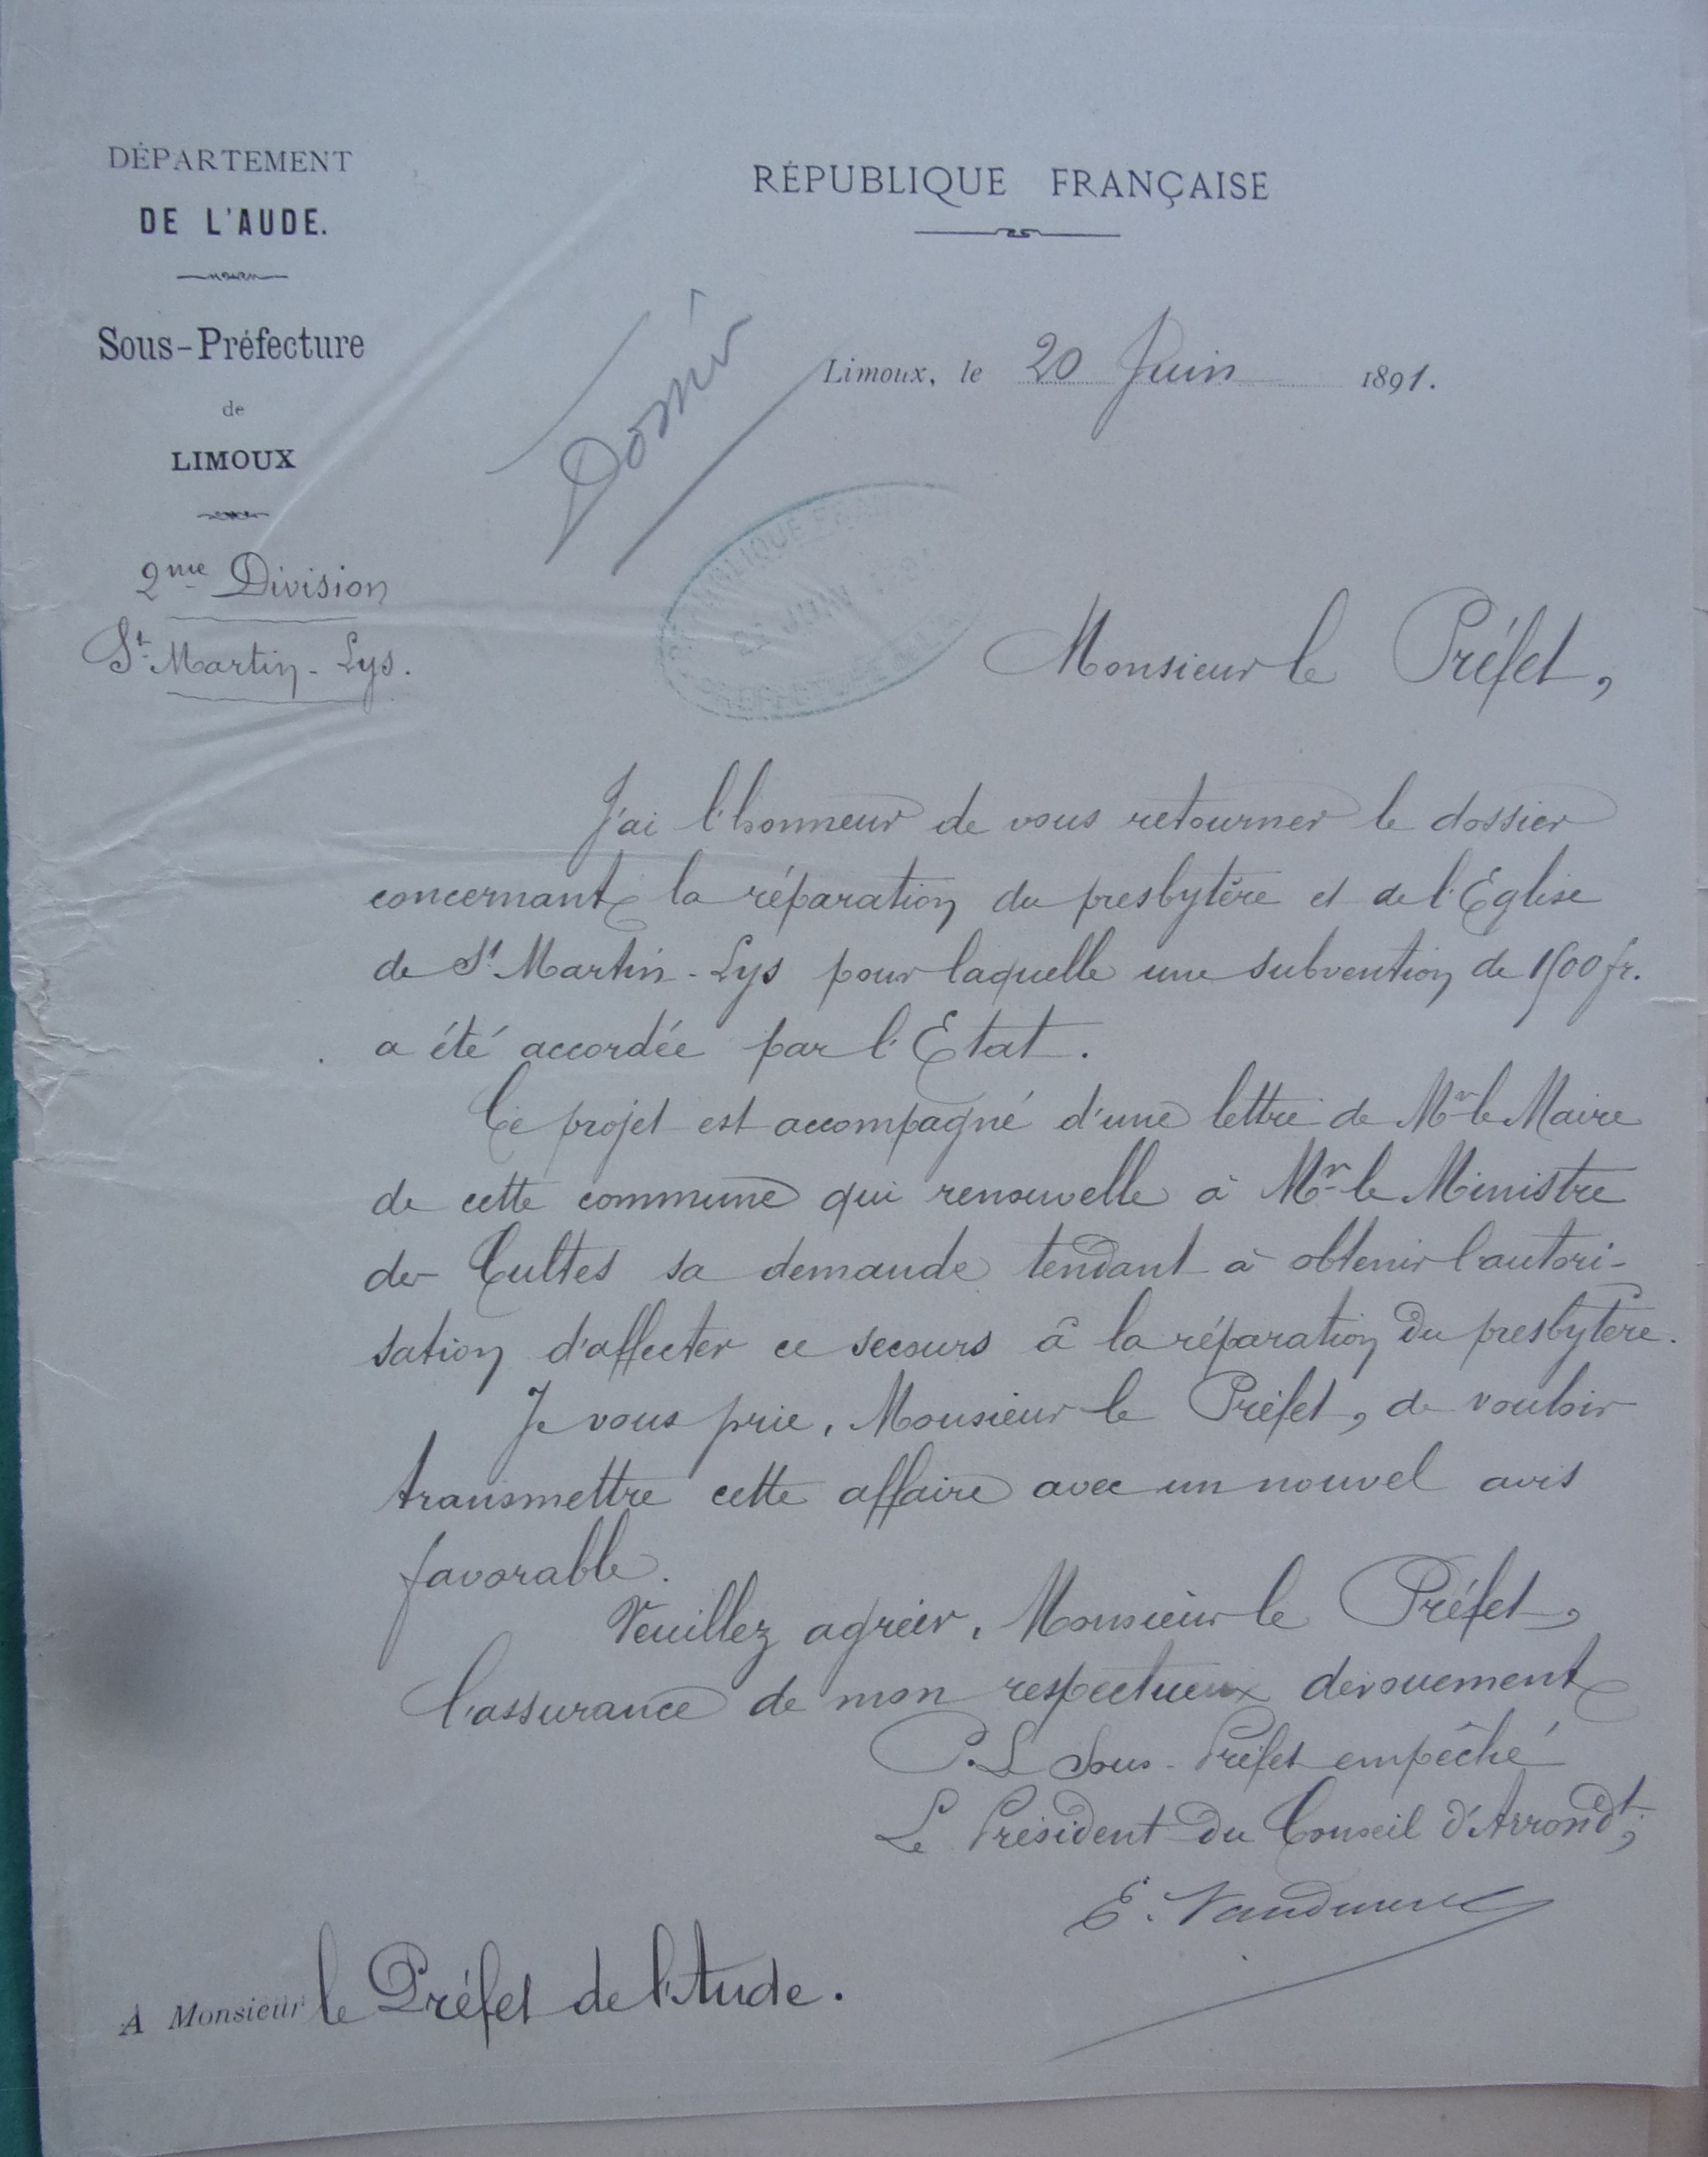 DÉPARTEMENT
DE L'AUDE.
Sous-Préfecture
de
LIMOUX
2me Division
St Martin-Lys.
RÉPUBLIQUE FRANÇAISE
Limoux, le 20 Juin 1891.
JUIN
Monsieur le Préfet,
J'ai l'honneur de vous retourner le dossier
concernant la réparation du presbytère et de l'Eglise
de St Martin-Lys pour laquelle une subvention de 1500 fr.
a été accordée par l'Etat.
Ce projet est accompagné d'une lettre de Mr le Maire
de cette commune qui renouvelle à Mr le Ministre
des Cultes sa demande tendant à obtenir l'autori-
sation d'affecter ce secours à la réparation du presbytère.
Je vous prie, Monsieur le Préfet, de vouloir
transmettre cette affaire avec un nouvel avis
favorable.
Veuillez agréer, Monsieur le Préfet,
l'assurance de mon respectueux dévouement
P. L Sous-Préfet empêché
Le Président du Conseil d'Arrondt,
E.
A Monsieur le Préfet de l'Aude.